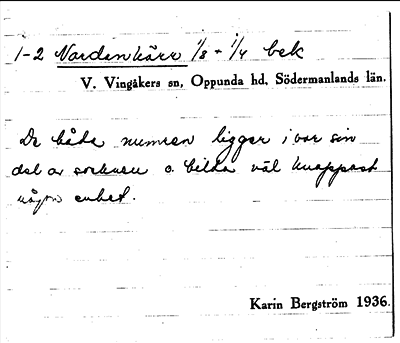 1-2 Nordenkärr 1/8 + 1/4 bek
V. Vingåkers sn, Oppunda hd, Södermanlands län.
De båda numren ligger i var sin
del av socknen o. bilda väl knappast
någon enhet.
Karin Bergström 1936.